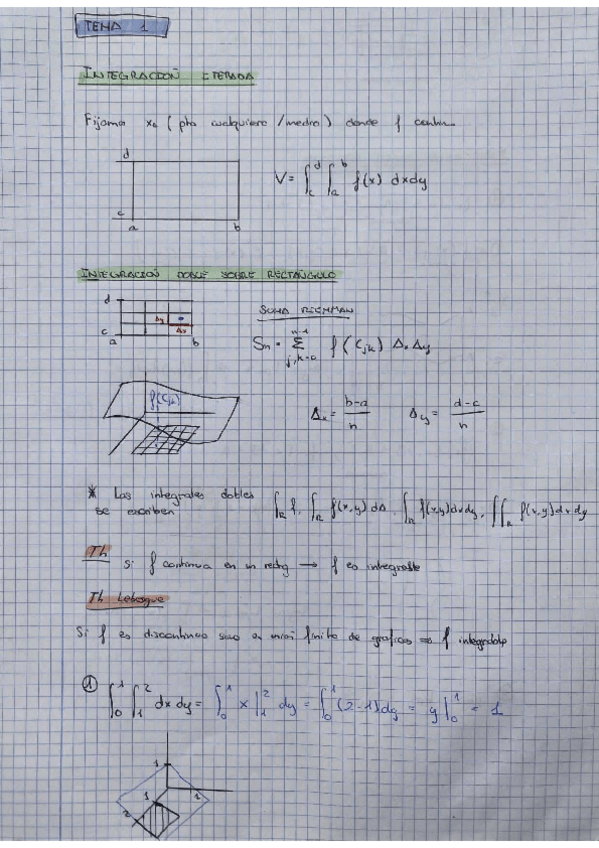 TEMA 1
INTEGRACIÓN ITERADA
Fijamos x₀ (pto cualquiera / medio) donde f contin
d
c
a b
V = ∫_c^d ∫_a^b f(x) dxdy
INTEGRACIÓN DOBLE SOBRE RECTÁNGULO
d
c
a b
Δy
Δx
SUMA RIEHMAN
Sn = Σ_{j,k=0}^{n-1} f(Cjk) Δx Δy
f(Cjk)
Δx = b-a/n Δy = d-c/n
* Las integrales dobles
se escriben ∫_R f, ∫_R f(x,y) dA, ∫_R f(x,y) dxdy, ∬_R f(x,y) dx dy
Th
Si f continua en un rectng → f es integrable
Th Lebesgue
Si f es discontinua unión finito de graficas ⇒ f integrable
① ∫_0^1 ∫_1^2 dx dy = ∫_0^1 x|_1^2 dy = ∫_0^1 (2-1)dy = y|_0^1 = 1
1
1 1
2